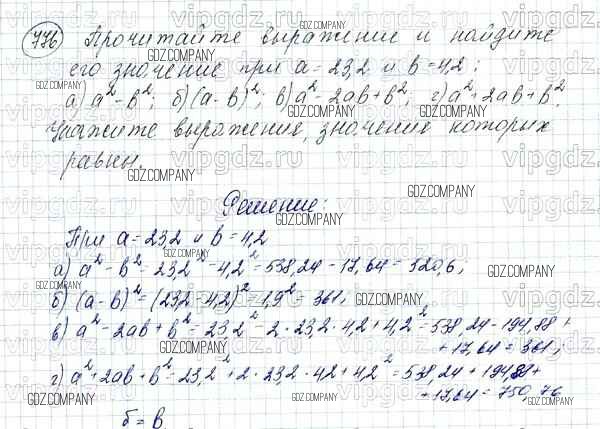 776 Прочитайте выражение и найдите
его значение при a=23,2 и b=4,2:
а) a²-b²; б) (a-b)²; в) a²-2ab+b²; г) a²+2ab+b².
Укажите выражение, значение которых
равны.
Решение:
При a=23,2 и b=4,2
а) a²-b²=23,2²-4,2²=538,24-17,64=520,6;
б) (a-b)²=(23,2-4,2)²=1,9²=361;
в) a²-2ab+b²=23,2²-2·23,2·4,2+4,2²=538,24-194,88+
+17,64=361;
г) a²+2ab+b²=23,2²+2·23,2·4,2+4,2²=538,24+194,88+
+17,64=750,76
б=в
vipgdz.ru
GDZ.COMPANY